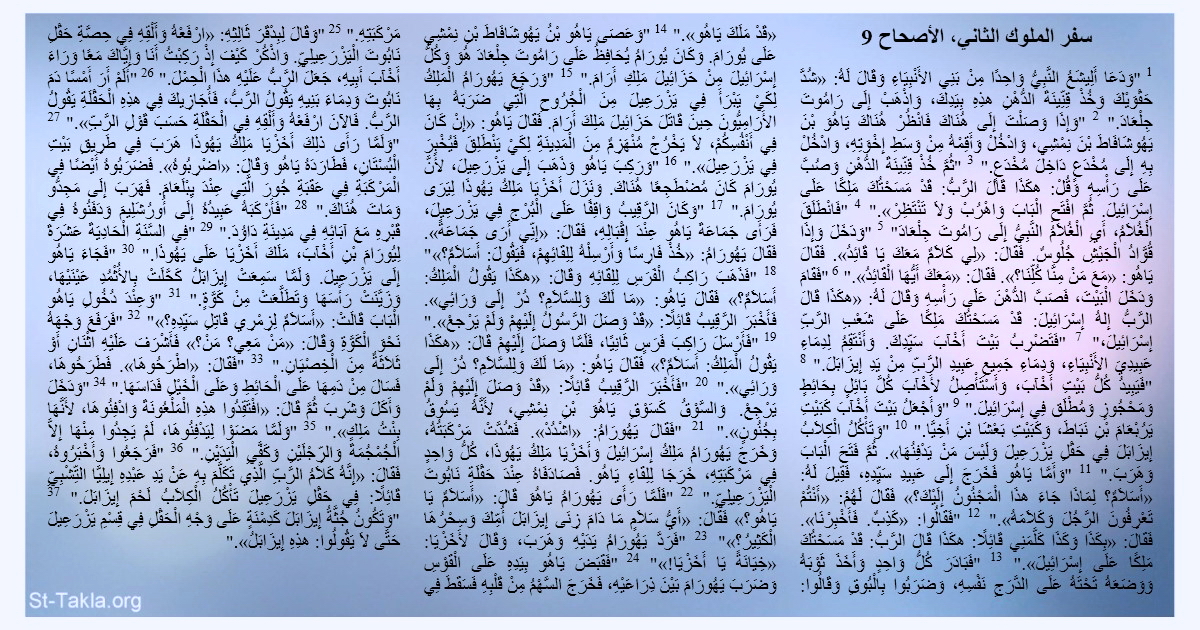 سفر الملوك الثاني، الأصحاح 9
1 "وَدَعَا أَلِيشَعُ النَّبِيُّ وَاحِدًا مِنْ بَنِي الأَنْبِيَاءِ وَقَالَ لَهُ: «شُدَّ
حَقْوَيْكَ وَخُذْ قِنِّينَةَ الدُّهْنِ هذِهِ بِيَدِكَ، وَاذْهَبْ إِلَى رَامُوتَ
جِلْعَادَ." 2 "وَإِذَا وَصَلْتَ إِلَى هُنَاكَ فَانْظُرْ هُنَاكَ يَاهُوَ بْنَ
يَهُوشَافَاطَ بْنِ نِمْشِي، وَادْخُلْ وَأَقِمْهُ مِنْ وَسَطِ إِخْوَتِهِ، وَادْخُلْ
بِهِ إِلَى مُخْدَعٍ دَاخِلَ مُخْدَعٍ." 3 "ثُمَّ خُذْ قِنِّينَةَ الدُّهْنِ وَصُبَّ
عَلَى رَأْسِهِ وَقُلْ: هكَذَا قَالَ الرَّبُّ: قَدْ مَسَحْتُكَ مَلِكًا عَلَى
إِسْرَائِيلَ. ثُمَّ افْتَحِ الْبَابَ وَاهْرُبْ وَلاَ تَنْتَظِرْ»." 4 "فَانْطَلَقَ
الْغُلاَمُ، أَيِ الْغُلاَمُ النَّبِيُّ إِلَى رَامُوتَ جِلْعَادَ" 5 "وَدَخَلَ وَإِذَا
قُوَّادُ الْجَيْشِ جُلُوسٌ. فَقَالَ: «لِي كَلاَمٌ مَعَكَ يَا قَائِدُ». فَقَالَ
يَاهُو: «مَعَ مَنْ مِنَّا كُلِّنَا؟». فَقَالَ: «مَعَكَ أَيُّهَا الْقَائِدُ»." 6 "فَقَامَ
وَدَخَلَ الْبَيْتَ، فَصَبَّ الدُّهْنَ عَلَى رَأْسِهِ وَقَالَ لَهُ: «هكَذَا قَالَ
الرَّبُّ إِلهُ إِسْرَائِيلَ: قَدْ مَسَحْتُكَ مَلِكًا عَلَى شَعْبِ الرَّبِّ
إِسْرَائِيلَ،" 7 "فَتَضْرِبُ بَيْتَ أَخْآبَ سَيِّدِكَ. وَأَنْتَقِمُ لِدِمَاءِ
عَبِيدِيَ الأَنْبِيَاءِ، وَدِمَاءِ جَمِيعِ عَبِيدِ الرَّبِّ مِنْ يَدِ إِيزَابَلَ." 8
"فَيَبِيدُ كُلُّ بَيْتِ أَخْآبَ، وَأَسْتَأْصِلُ لأَخْآبَ كُلَّ بَائِلٍ بِحَائِطٍ
وَمَحْجُوزٍ وَمُطْلَق فِي إِسْرَائِيلَ." 9 "وَأَجْعَلُ بَيْتَ أَخْآبَ كَبَيْتِ
يَرُبْعَامَ بْنِ نَبَاطَ، وَكَبَيْتِ بَعْشَا بْنِ أَخِيَّا." 10 "وَتَأْكُلُ الْكِلاَبُ
إِيزَابَلَ فِي حَقْلِ يَزْرَعِيلَ وَلَيْسَ مَنْ يَدْفِنُهَا». ثُمَّ فَتَحَ الْبَابَ
وَهَرَبَ." 11 "وَأَمَّا يَاهُو فَخَرَجَ إِلَى عَبِيدِ سَيِّدِهِ، فَقِيلَ لَهُ:
«أَسَلاَمٌ؟ لِمَاذَا جَاءَ هذَا الْمَجْنُونُ إِلَيْكَ؟» فَقَالَ لَهُمْ: «أَنْتُمْ
تَعْرِفُونَ الرَّجُلَ وَكَلاَمَهُ»." 12 "فَقَالُوا: «كَذِبٌ. فَأَخْبِرْنَا».
فَقَالَ: «بِكَذَا وَكَذَا كَلَّمَنِي قَائِلًا: هكَذَا قَالَ الرَّبُّ: قَدْ مَسَحْتُكَ
مَلِكًا عَلَى إِسْرَائِيلَ»." 13 "فَبَادَرَ كُلُّ وَاحِدٍ وَأَخَذَ ثَوْبَهُ
وَوَضَعَهُ تَحْتَهُ عَلَى الدَّرَجِ نَفْسِهِ، وَضَرَبُوا بِالْبُوقِ وَقَالُوا:
«قَدْ مَلَكَ يَاهُو»." 14 "وَعَصَى يَاهُو بْنُ يَهُوشَافَاطَ بْنِ نِمْشِي
عَلَى يُورَامَ. وَكَانَ يُورَامُ يُحَافِظُ عَلَى رَامُوتَ جِلْعَادَ هُوَ وَكُلُّ
إِسْرَائِيلَ مِنْ حَزَائِيلَ مَلِكِ أَرَامَ." 15 "وَرَجَعَ يَهُورَامُ الْمَلِكُ
لِكَيْ يَبْرَأَ فِي يَزْرَعِيلَ مِنَ الْجُرُوحِ الَّتِي ضَرَبَهُ بِهَا
الأَرَامِيُّونَ حِينَ قَاتَلَ حَزَائِيلَ مَلِكَ أَرَامَ. فَقَالَ يَاهُو: «إِنْ كَانَ
فِي أَنْفُسِكُمْ، لاَ يَخْرُجْ مُنْهَزِمٌ مِنَ الْمَدِينَةِ لِكَيْ يَنْطَلِقَ فَيُخْبِرَ
فِي يَزْرَعِيلَ»." 16 "وَرَكِبَ يَاهُو وَذَهَبَ إِلَى يَزْرَعِيلَ، لأَنَّ
يُورَامَ كَانَ مُضْطَجِعًا هُنَاكَ. وَنَزَلَ أَخَزْيَا مَلِكُ يَهُوذَا لِيَرَى
يُورَامَ." 17 "وَكَانَ الرَّقِيبُ وَاقِفًا عَلَى الْبُرْجِ فِي يَزْرَعِيلَ،
فَرَأَى جَمَاعَةَ يَاهُو عِنْدَ إِقْبَالِهِ، فَقَالَ: «إِنِّي أَرَى جَمَاعَةً».
فَقَالَ يَهُورَامُ: «خُذْ فَارِسًا وَأَرْسِلْهُ لِلِقَائِهِمْ، فَيَقُولَ: أَسَلاَمٌ؟»"
18 "فَذَهَبَ رَاكِبُ الْفَرَسِ لِلِقَائِهِ وَقَالَ: «هكَذَا يَقُولُ الْمَلِكُ:
أَسَلاَمٌ؟» فَقَالَ يَاهُو: «مَا لَكَ وَلِلسَّلاَمِ؟ دُرْ إِلَى وَرَائِي».
فَأَخْبَرَ الرَّقِيبُ قَائِلًا: «قَدْ وَصَلَ الرَّسُولُ إِلَيْهِمْ وَلَمْ يَرْجعْ»."
19 "فَأَرْسَلَ رَاكِبَ فَرَسٍ ثَانِيًا، فَلَمَّا وَصَلَ إِلَيْهِمْ قَالَ: «هكَذَا
يَقُولُ الْمَلِكُ: أَسَلاَمٌ؟». فَقَالَ يَاهُو: «مَا لَكَ وَلِلسَّلاَمِ؟ دُرْ إِلَى
وَرَائِي»." 20 "فَأَخْبَرَ الرَّقِيبُ قَائِلًا: «قَدْ وَصَلَ إِلَيْهِمْ وَلَمْ
يَرْجعْ. وَالسَّوْقُ كَسَوْقِ يَاهُوَ بْنِ نِمْشِي، لأَنَّهُ يَسُوقُ
بِجُنُونٍ»." 21 "فَقَالَ يَهُورَامُ: «اشْدُدْ». فَشُدَّتْ مَرْكَبَتُهُ،
وَخَرَجَ يَهُورَامُ مَلِكُ إِسْرَائِيلَ وَأَخَزْيَا مَلِكُ يَهُوذَا، كُلُّ وَاحِدٍ
فِي مَرْكَبَتِهِ، خَرَجَا لِلِقَاءِ يَاهُو. فَصَادَفَاهُ عِنْدَ حَقْلَةِ نَابُوتَ
الْيَزْرَعِيلِيِّ." 22 "فَلَمَّا رَأَى يَهُورَامُ يَاهُوَ قَالَ: «أَسَلاَمٌ يَا
يَاهُو؟» فَقَالَ: «أَيُّ سَلاَمٍ مَا دَامَ زِنَى إِيزَابَلَ أُمِّكَ وَسِحْرُهَا
الْكَثِيرُ؟»" 23 "فَرَدَّ يَهُورَامُ يَدَيْهِ وَهَرَبَ، وَقَالَ لأَخَزْيَا:
«خِيَانَةً يَا أَخَزْيَا!»" 24 "فَقَبَضَ يَاهُو بِيَدِهِ عَلَى الْقَوْسِ
وَضَرَبَ يَهُورَامَ بَيْنَ ذِرَاعَيْهِ، فَخَرَجَ السَّهْمُ مِنْ قَلْبِهِ فَسَقَطَ فِي
مَرْكَبَتِهِ." 25 "وَقَالَ لِبِدْقَرَ ثَالِثِهِ: «ارْفَعْهُ وَأَلْقِهِ فِي حِصَّةِ حَقْلِ
نَابُوتَ الْيَزْرَعِيلِيِّ. وَاذْكُرْ كَيْفَ إِذْ رَكِبْتُ أَنَا وَإِيَّاكَ مَعًا وَرَاءَ
أَخْآبَ أَبِيهِ، جَعَلَ الرَّبُّ عَلَيْهِ هذَا الْحِمْلَ." 26 "أَلَمْ أَرَ أَمْسًا دَمَ
نَابُوتَ وَدِمَاءَ بَنِيهِ يَقُولُ الرَّبُّ، فَأُجَازِيكَ فِي هذِهِ الْحَقْلَةِ يَقُولُ
الرَّبُّ. فَالآنَ ارْفَعْهُ وَأَلْقِهِ فِي الْحَقْلَةِ حَسَبَ قَوْلِ الرَّبِّ»." 27
"وَلَمَّا رَأَى ذلِكَ أَخَزْيَا مَلِكُ يَهُوذَا هَرَبَ فِي طَرِيقِ بَيْتِ
الْبُسْتَانِ، فَطَارَدَهُ يَاهُو وَقَالَ: «اضْرِبُوهُ». فَضَرَبُوهُ أَيْضًا فِي
الْمَرْكَبَةِ فِي عَقَبَةِ جُورَ الَّتِي عِنْدَ يِبْلَعَامَ. فَهَرَبَ إِلَى مَجِدُّو
وَمَاتَ هُنَاكَ." 28 "فَأَرْكَبَهُ عَبِيدُهُ إِلَى أُورُشَلِيمَ وَدَفَنُوهُ فِي
قَبْرِهِ مَعَ آبَائِهِ فِي مَدِينَةِ دَاوُدَ." 29 "فِي السَّنَةِ الْحَادِيَةَ عَشَرَةَ
لِيُورَامَ بْنِ أَخْآبَ، مَلَكَ أَخَزْيَا عَلَى يَهُوذَا." 30 "فَجَاءَ يَاهُو
إِلَى يَزْرَعِيلَ. وَلَمَّا سَمِعَتْ إِيزَابَلُ كَحَّلَتْ بِالأُثْمُدِ عَيْنَيْهَا،
وَزَيَّنَتْ رَأْسَهَا وَتَطَلَّعَتْ مِنْ كَوَّةٍ." 31 "وَعِنْدَ دُخُولِ يَاهُو
الْبَابَ قَالَتْ: «أَسَلاَمٌ لِزِمْرِي قَاتِلِ سَيِّدِهِ؟»" 32 "فَرَفَعَ وَجْهَهُ
نَحْوَ الْكَوَّةِ وَقَالَ: «مَنْ مَعِي؟ مَنْ؟» فَأَشْرَفَ عَلَيْهِ اثْنَانِ أَوْ
ثَلاَثَةٌ مِنَ الْخِصْيَانِ." 33 "فَقَالَ: «اطْرَحُوهَا». فَطَرَحُوهَا،
فَسَالَ مِنْ دَمِهَا عَلَى الْحَائِطِ وَعَلَى الْخَيْلِ فَدَاسَهَا." 34 "وَدَخَلَ
وَأَكَلَ وَشَرِبَ ثُمَّ قَالَ: «افْتَقِدُوا هذِهِ الْمَلْعُونَةَ وَادْفِنُوهَا، لأَنَّهَا
بِنْتُ مَلِكٍ»." 35 "وَلَمَّا مَضَوْا لِيَدْفِنُوهَا، لَمْ يَجِدُوا مِنْهَا إِلاَّ
الْجُمْجُمَةَ وَالرِّجْلَيْنِ وَكَفَّيِ الْيَدَيْنِ." 36 "فَرَجَعُوا وَأَخْبَرُوهُ،
فَقَالَ: «إِنَّهُ كَلاَمُ الرَّبِّ الَّذِي تَكَلَّمَ بِهِ عَنْ يَدِ عَبْدِهِ إِيلِيَّا التِّشْبِيِّ
قَائِلًا: فِي حَقْلِ يَزْرَعِيلَ تَأْكُلُ الْكِلاَبُ لَحْمَ إِيزَابَلَ." 37
"وَتَكُونُ جُثَّةُ إِيزَابَلَ كَدِمْنَةٍ عَلَى وَجْهِ الْحَقْلِ فِي قِسْمِ يَزْرَعِيلَ
حَتَّى لاَ يَقُولُوا: هذِهِ إِيزَابَلُ»."
St-Takla.org